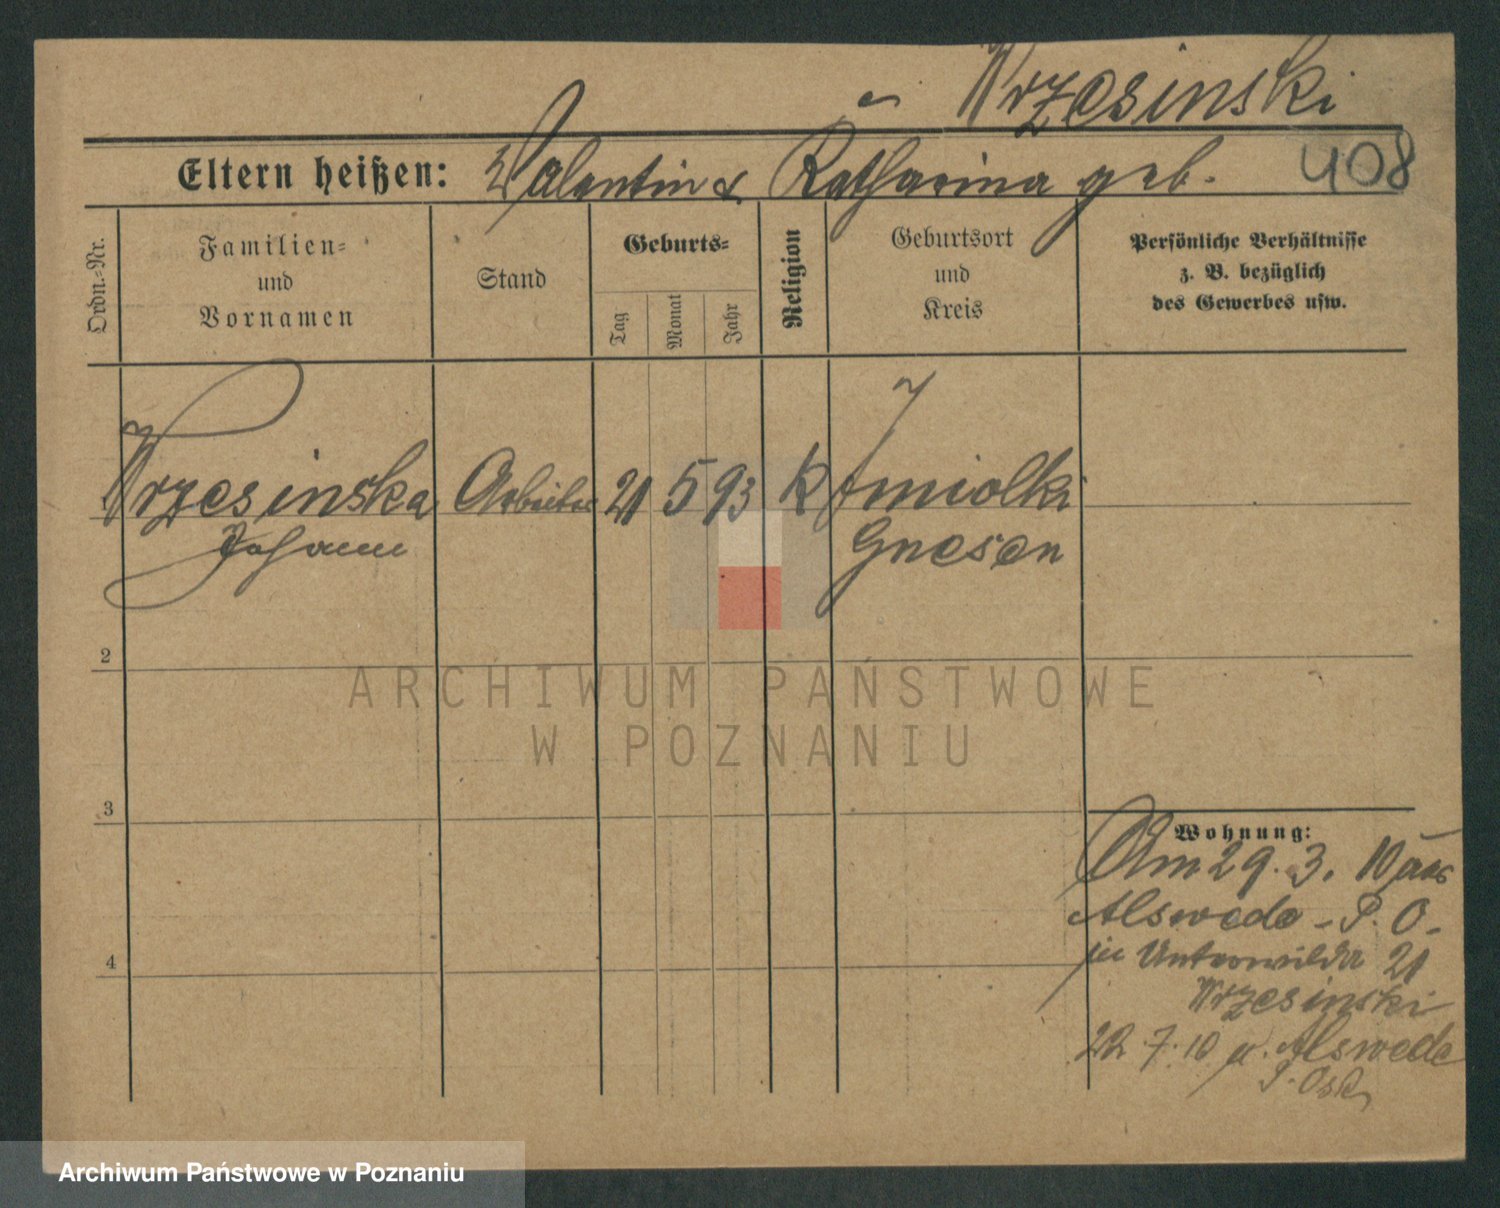 Wrzesinski
Eltern heißen: Valentin & Katharina geb.
408
Ordn.-Nr.
Familien-
und
Vornamen
Stand
Geburts-
Tag
Monat
Jahr
Religion
Geburtsort
und
Kreis
Persönliche Verhältnisse
z. B. bezüglich
des Gewerbes usw.
Wrzesinska Arbeiter 21 5 93 K Imiolki
Johann Gnesen
2
ARCHIWUM PAŃSTWOWE
W POZNANIU
3
Wohnung:
Am 29. 3. 10 aus
Alswede - P. O.
4
in Unterwilda 21
Wrzesinski
22. 7. 10 n. Alswede
Archiwum Państwowe w Poznaniu